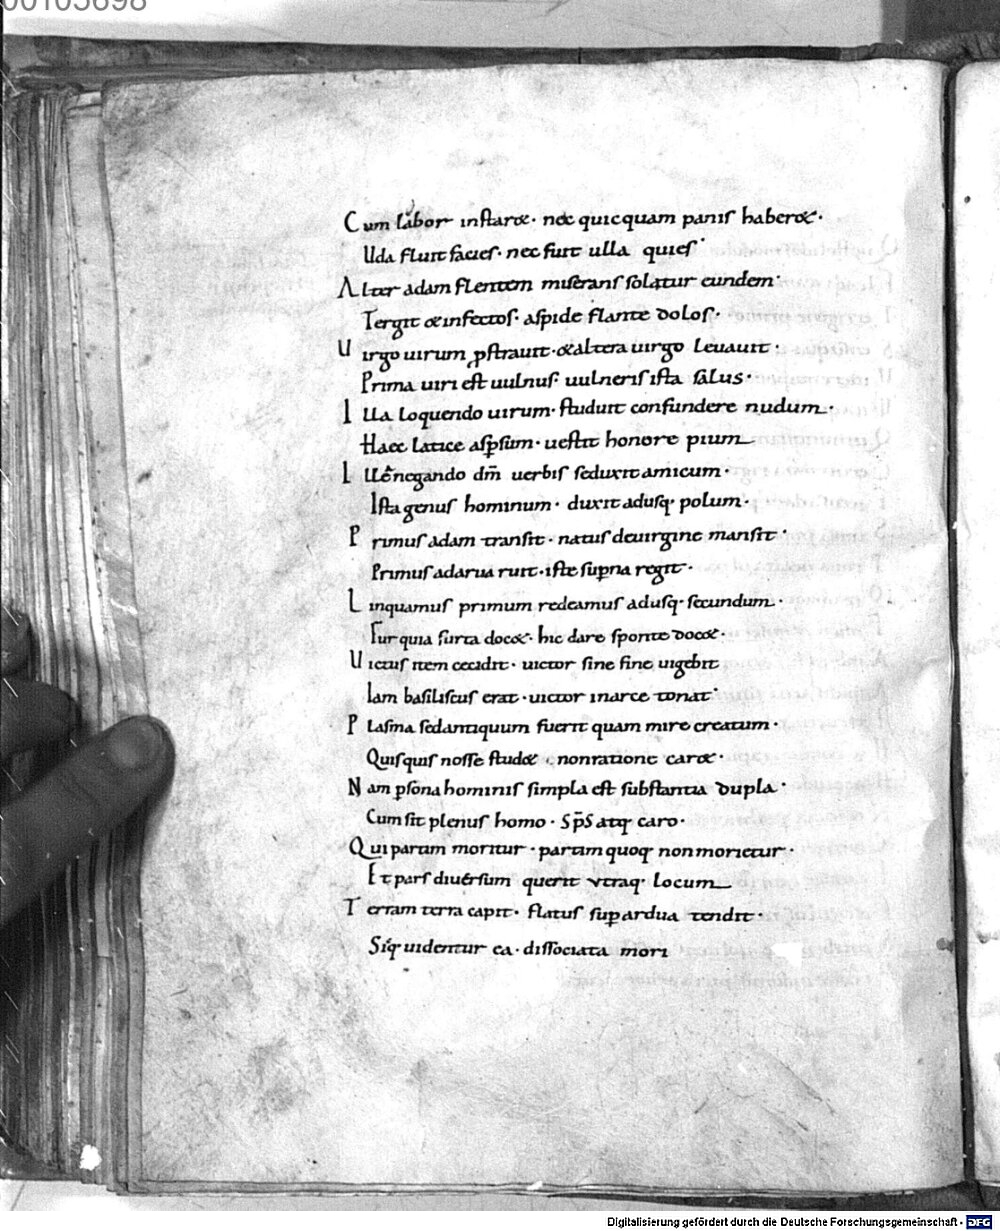 00105698
Cum labor instaret · nec quicquam panis haberet ·
Uda fluit facies · nec fuit ulla quies ·
Alter adam flentem miserans solatur eundem ·
Tergit & infectos · aspide flante dolos ·
Uirgo uirum ꝓstrauit · & altera uirgo leuauit ·
Prima uiri est uulnus · uulneris ista salus ·
Illa loquendo uirum · studuit confundere nudum ·
Haec latice asꝑsum · uestit honore pium
Illa negando dm̄ uerbis seduxit amicum ·
Ista genus hominum · duxit adusq · polum ·
Primus adam transit · natus deuirgine mansit ·
Primus ad arua ruit · iste suꝑna regit ·
Linquamus primum redeamus adusq · secundum ·
Fur quia furta docet · hic dare sponte docet ·
Uictus item cecidit · uictor sine fine uigebit
Iam basiliscus erat · uictor in arce tonat ·
Plasma sed antiquum fuerit quam mire creatum ·
Quisquis nosse studet · non ratione caret ·
Nam ꝑsona hominis simpla est substantia dupla ·
Cum sit plenus homo · sp̄s atq caro ·
Qui partim moritur · partim quoq non morietur ·
Et pars diuersum querit utraq · locum
Terram terra capit · flatus suꝑ ardua tendit ·
Sicq uidentur ea · dissociata mori
Digitalisierung gefördert durch die Deutsche Forschungsgemeinschaft - DFG